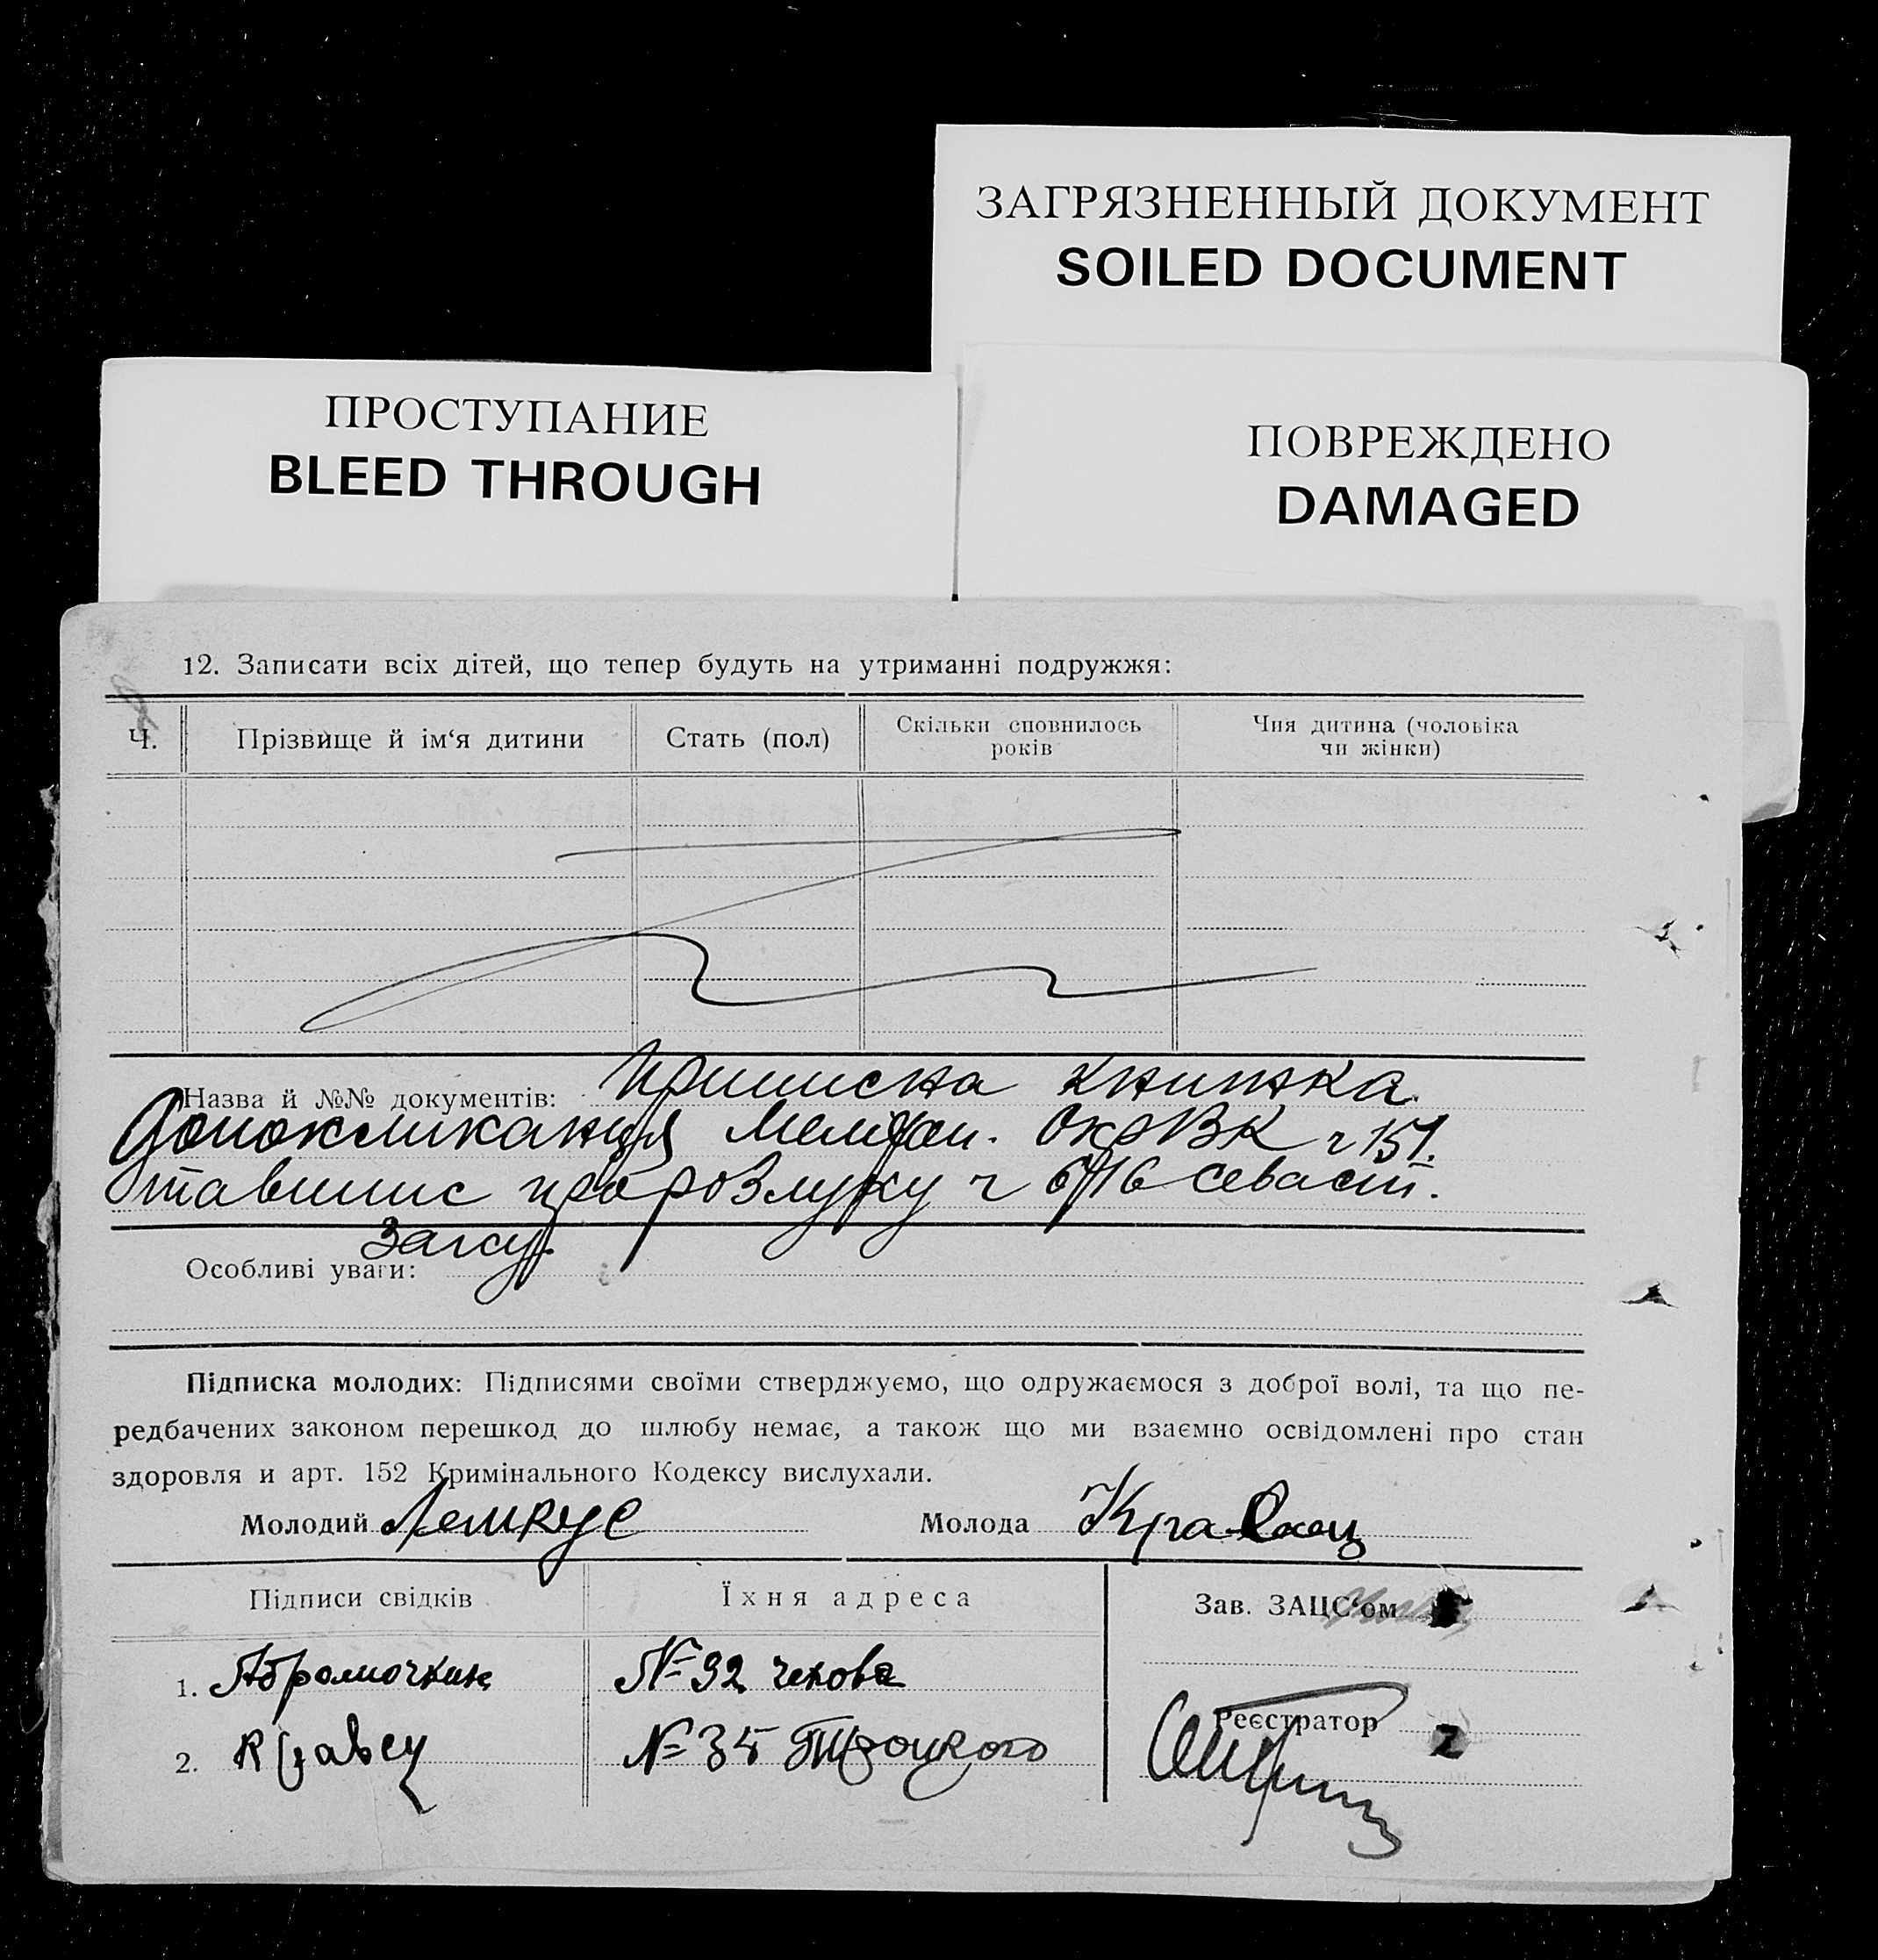 ЗАГРЯЗНЕННЫЙ ДОКУМЕНТ
SOILED DOCUMENT
ПРОСТУПАНИЕ
BLEED THROUGH
ПОВРЕЖДЕНО
DAMAGED
12. Записати всіх дітей, що тепер будуть на утриманні подружжя:
Ч.
Прізвище й ім‘я дитини
Стать (пол)
Скільки сповнилось
років
Чия дитина (чоловіка
чи жінки)
Назва й №№ документів: приписна книжка
Мелітоп. ОкрВК ч 151.
про розлуку ч 6/16 Севаст.
Загсу.
Особливі уваги:
Підписка молодих: Підписями своїми стверджуємо, що одружаємося з доброї волі, та що пе-
редбачених законом перешкод до шлюбу немає, а також що ми взаємно освідомлені про стан
здоровля и арт. 152 Кримінального Кодексу вислухали.
Молодий
Молода Кравец
Підписи свідків
Їхня адреса
Зав. ЗАЦС‘ом
1. Абрамочкин
№ 92 чехова
Реєстратор
2. Кравец
№ 35 Троцкого